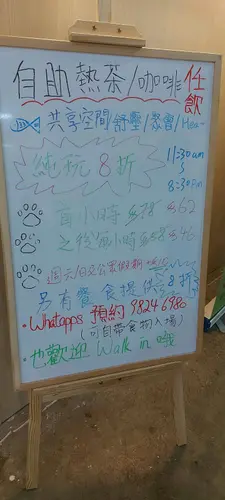 自助熱茶/咖啡 任飲
共享空間 舒壓/聚會/Hea~
11:30am
純玩8折
8:30pm
首小時 $78 $62
之後每小時 $58 $46
週六/日及公眾假期
另有餐食提供 8折
• Whatapps 預約 9824 6980
(可自帶食物入場)
• 也歡迎 Walk in 哦